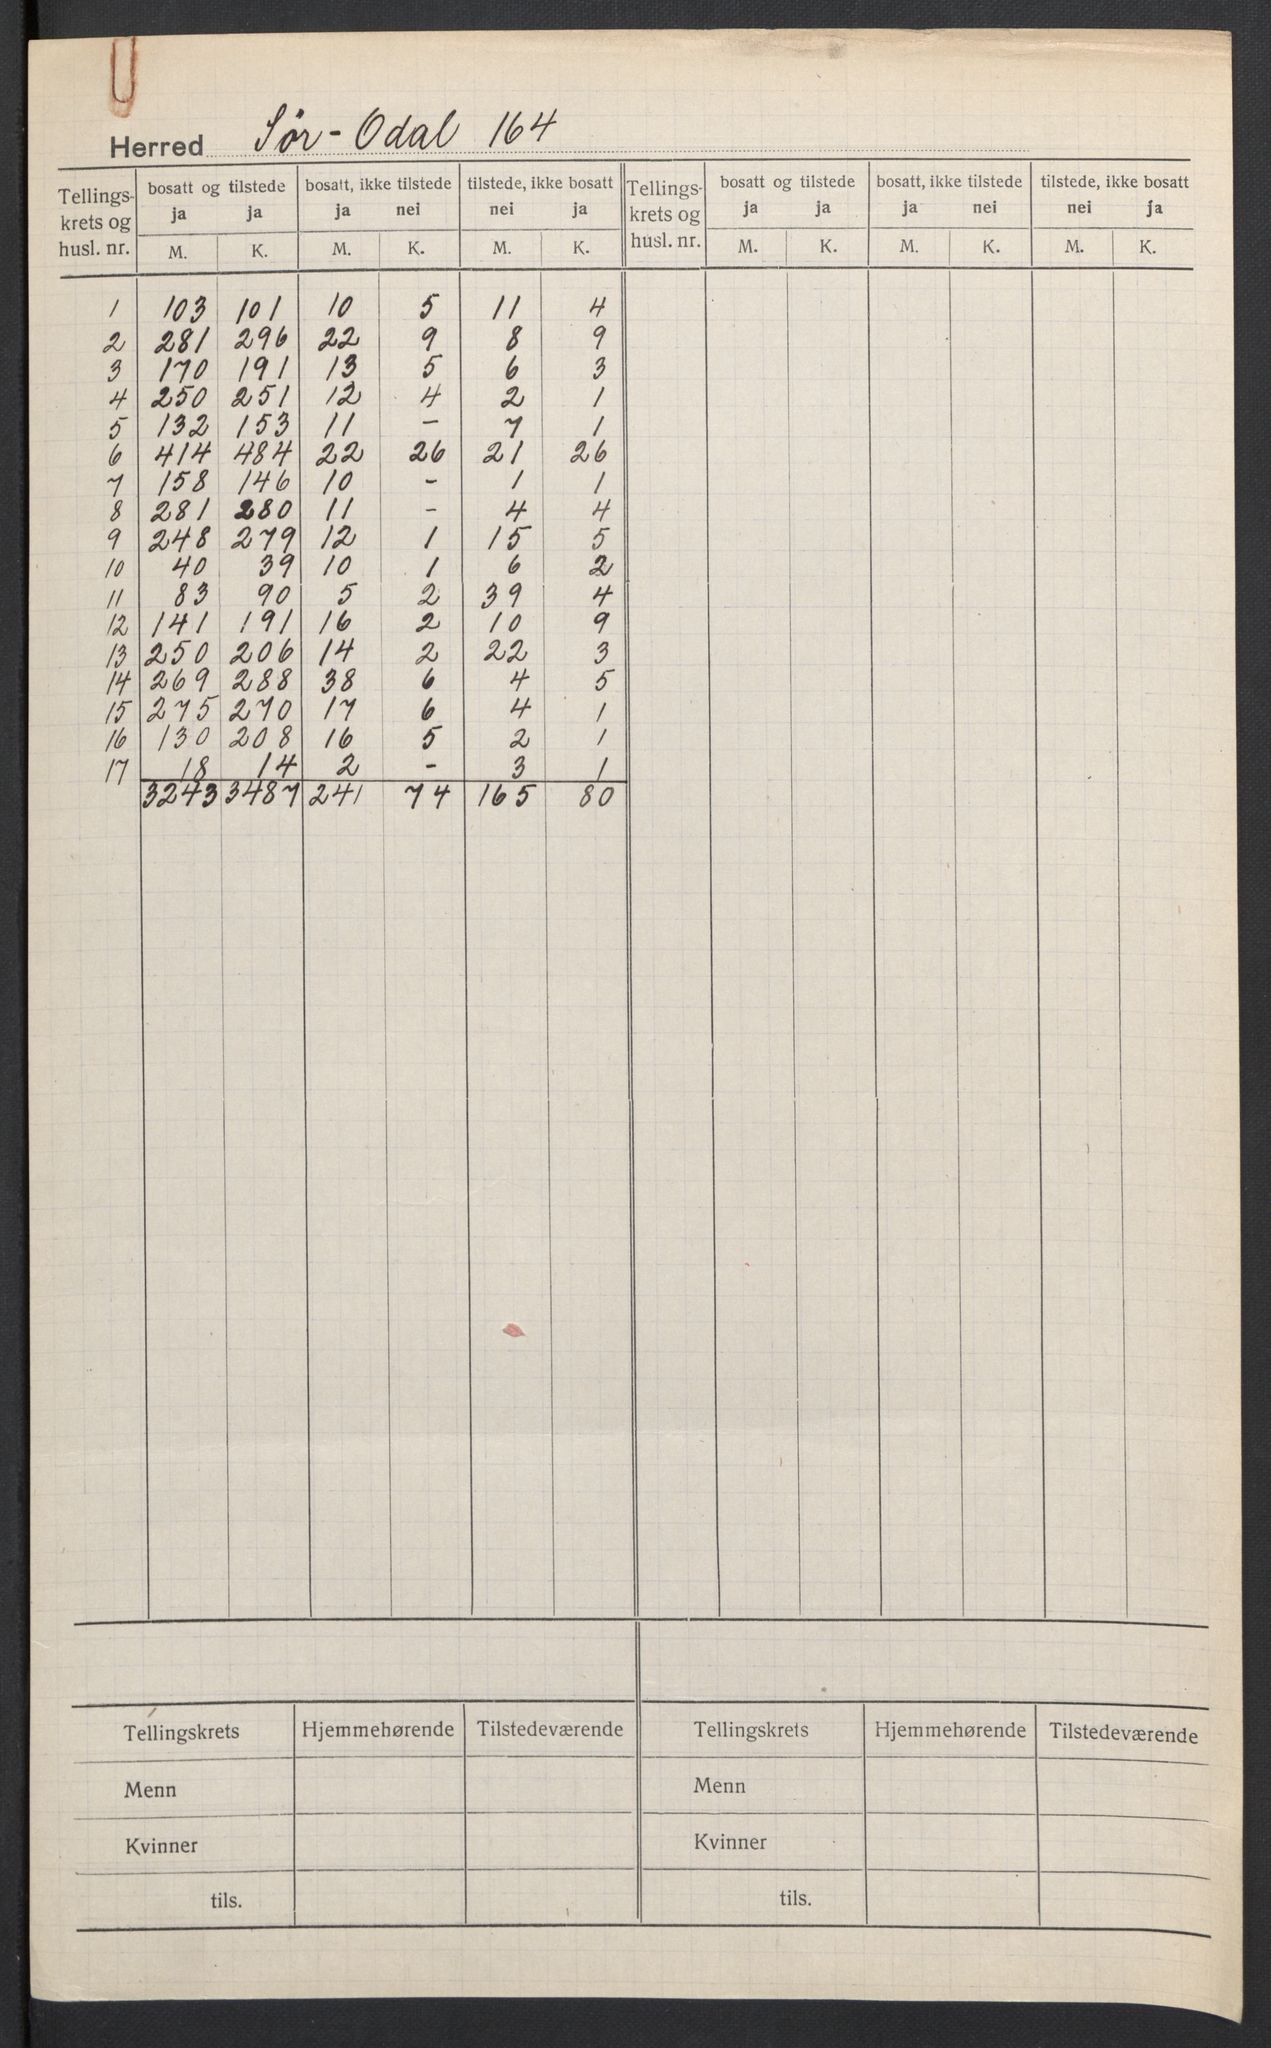 Herred Sør-Odal 164
Tellings- krets og husl. nr. | bosatt og tilstede ja ja | bosatt, ikke tilstede ja nei | tilstede, ikke bosatt nei ja | Tellings- krets og husl. nr. | bosatt og tilstede ja ja | bosatt, ikke tilstede ja nei | tilstede, ikke bosatt nei ja
M. K. M. K. M. K. M. K. M. K. M. K.
1 103 101 10 5 11 4
2 281 296 22 9 8 9
3 170 191 13 5 6 3
4 250 251 12 4 2 1
5 132 153 11 - 7 1
6 414 484 22 26 21 26
7 158 146 10 - 1 1
8 281 280 11 - 4 4
9 248 279 12 1 15 5
10 40 39 10 1 6 2
11 83 90 5 2 39 4
12 141 191 16 2 10 9
13 250 206 14 2 22 3
14 269 288 38 6 4 5
15 275 270 17 6 4 1
16 130 208 16 5 2 1
17 18 14 2 - 3 1
3243 3487 241 74 165 80
Tellingskrets Hjemmehørende Tilstedeværende Tellingskrets Hjemmehørende Tilstedeværende
Menn Menn
Kvinner Kvinner
tils. tils.